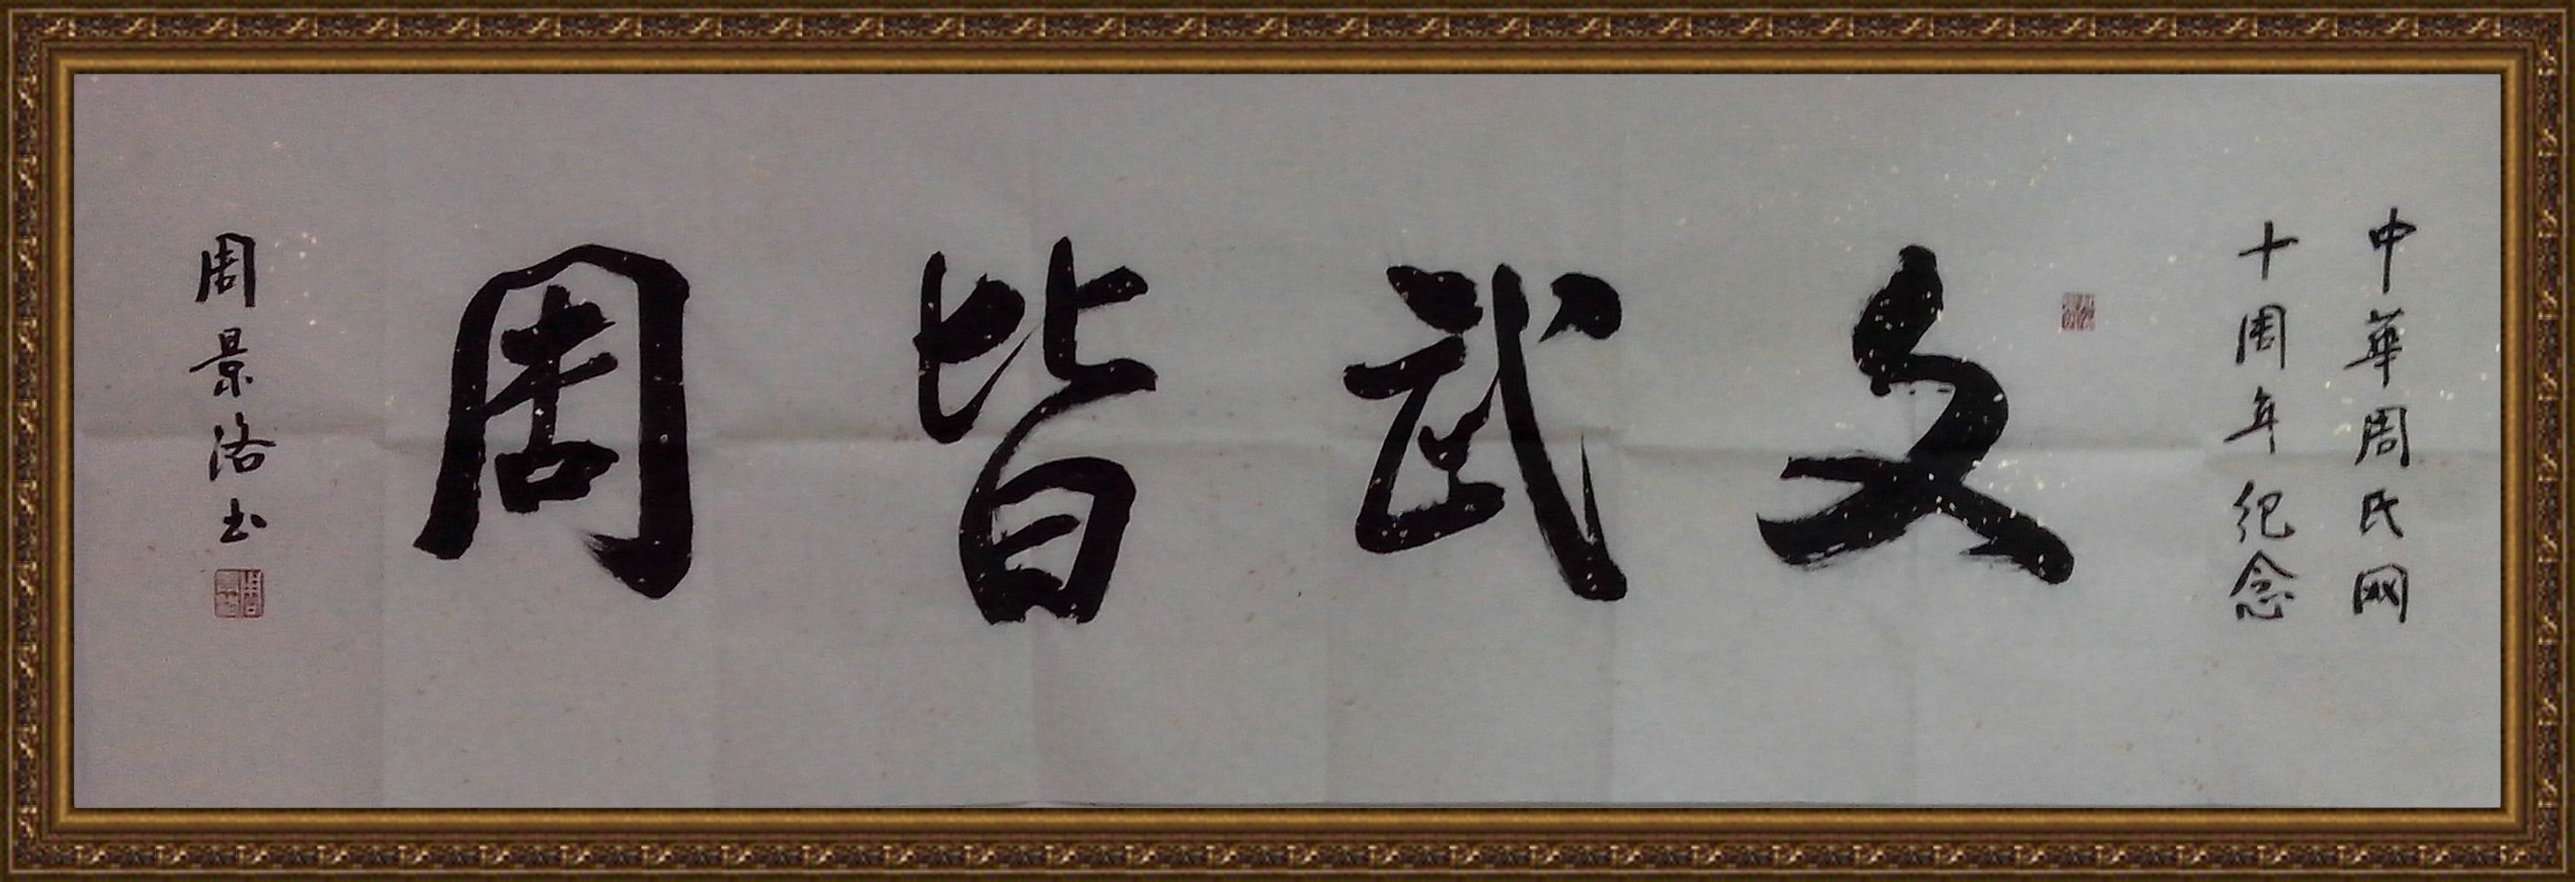 中華周氏网
十周年纪念
文武皆周
周景洛书